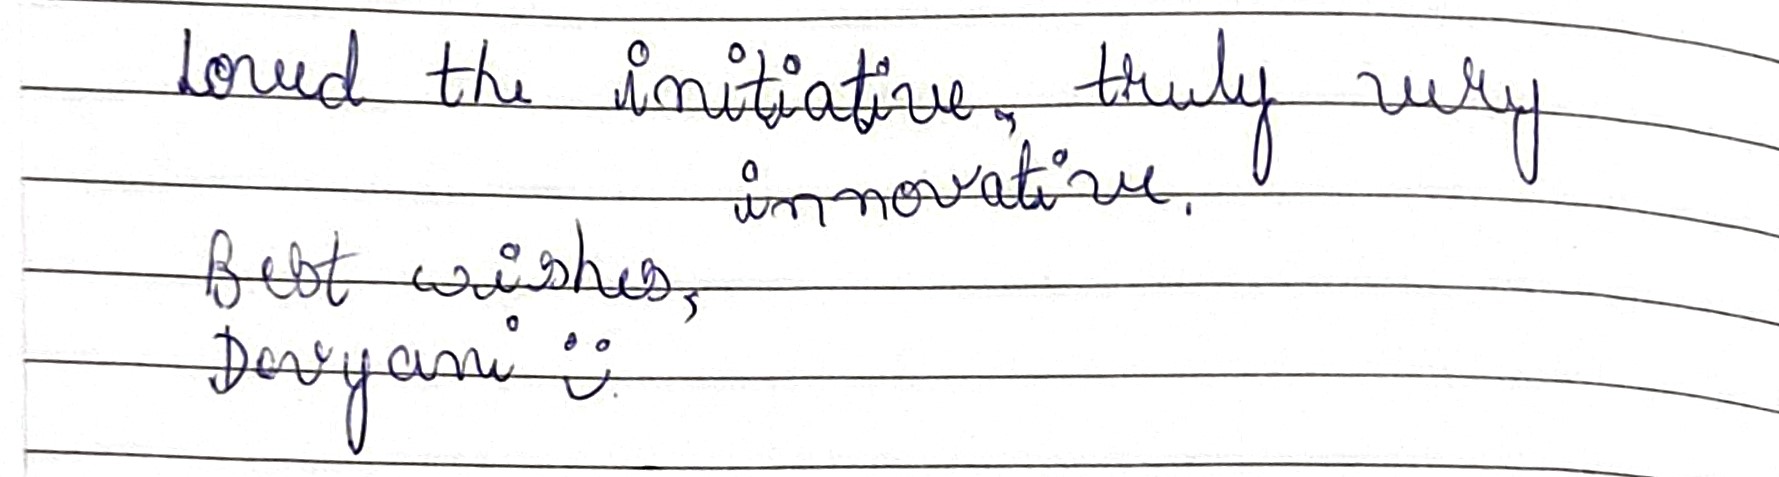 Loved the initiative, truly very
innovative.
Best wishes,
Devyani :)